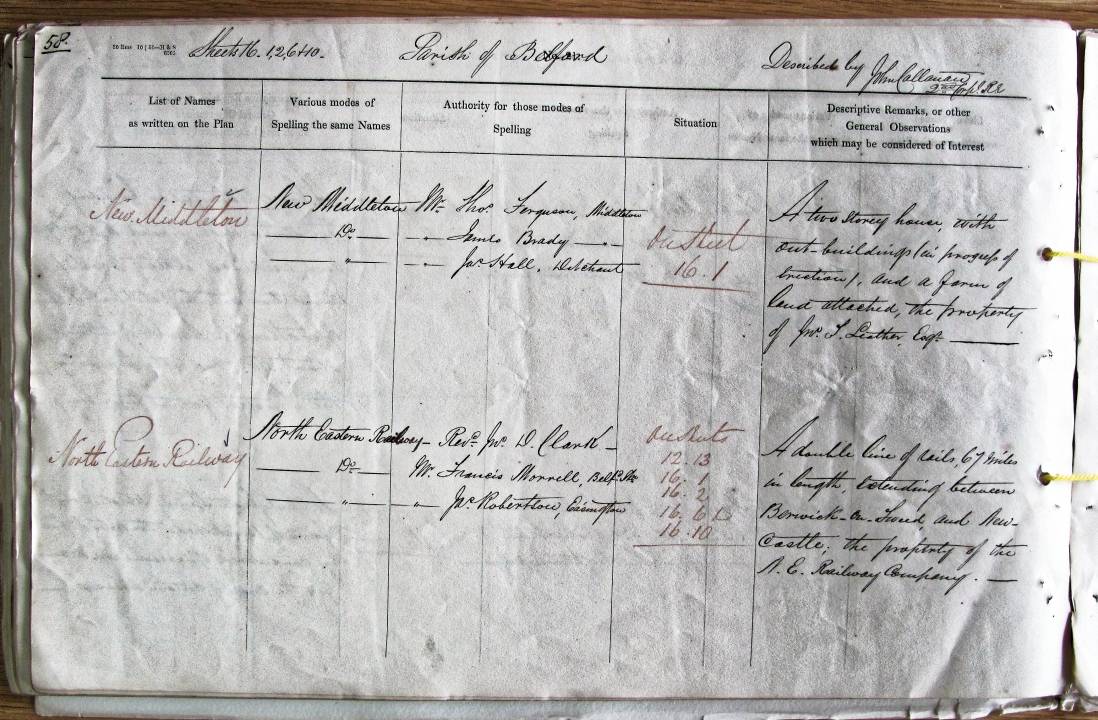 58.
Sheets 16. 1, 2, 6 & 10.
Parish of Belford
Described by John Callanan
2nd Corpl R.E.
List of Names
as written on the Plan
Various modes of
Spelling the same Names
Authority for those modes of
Spelling
Situation
Descriptive Remarks, or other
General Observations
which may be considered of Interest
New Middleton
New Middleton
Do
"
Mr. Thos. Ferguson, Middleton
" James Brady "
" Jas. Hall, Detchant
On Sheet
16. 1
A two storey house, with
out-buildings (in progress of
erection), and a farm of
land attached, the property
of Jno. T. Leather, Esqr.
North Eastern Railway
North Eastern Railway
Do
"
Revd. Jno. D. Clark
Mr. Francis Morrell, Belfd. Stn
" Jas. Robertson, Easington
On Sheets
12. 13
16. 1
16. 2
16. 6
16. 10
A double line of rails, 67 miles
in length, extending between
Berwick-on-Tweed, and New-
Castle; the property of the
N. E. Railway Company.